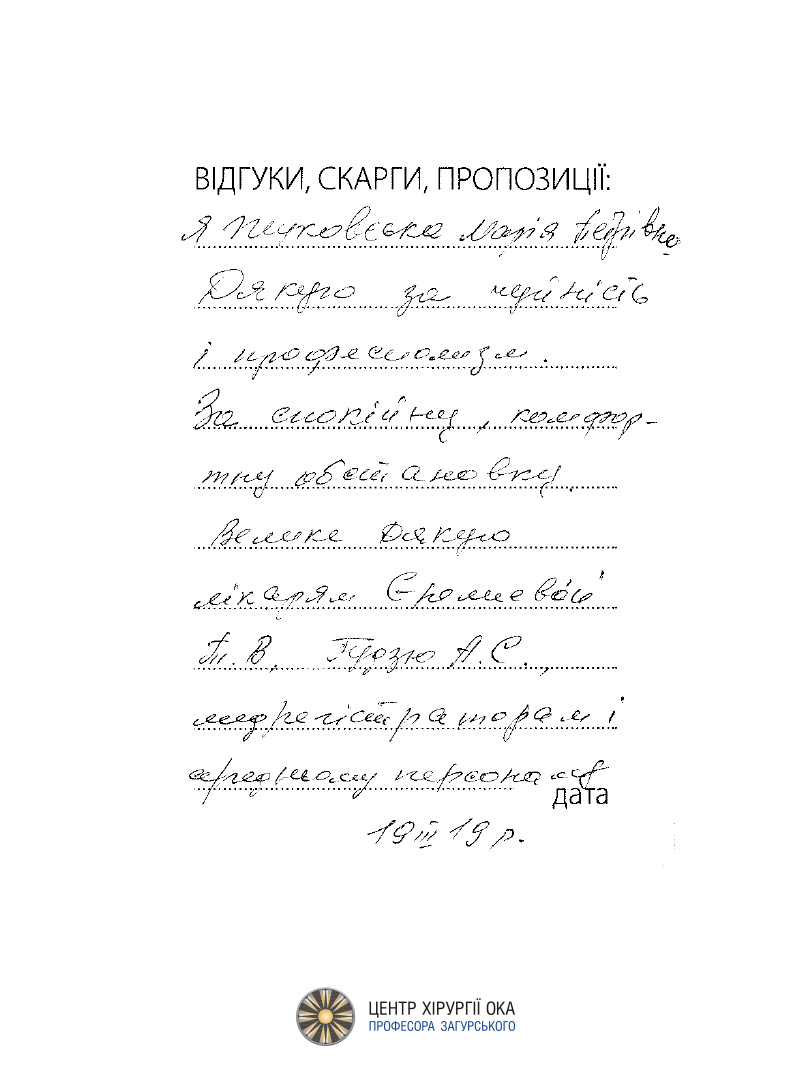 ВІДГУКИ, СКАРГИ, ПРОПОЗИЦІЇ:
Я Марія Петрівна
Дякую за чуйність
і професіоналізм.
За спокійну, комфор-
тну обстановку.
Велике Дякую
лікарям
Т.В, Гудзю А.С.,
медрегістраторам і
середньому персоналу
дата
19 III 19 р.
ЦЕНТР ХІРУРГІЇ ОКА
ПРОФЕСОРА ЗАГУРСЬКОГО